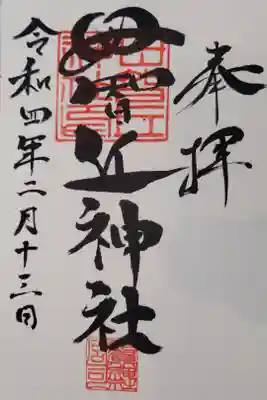 奉拝
母智丘神社
令和四年二月十三日